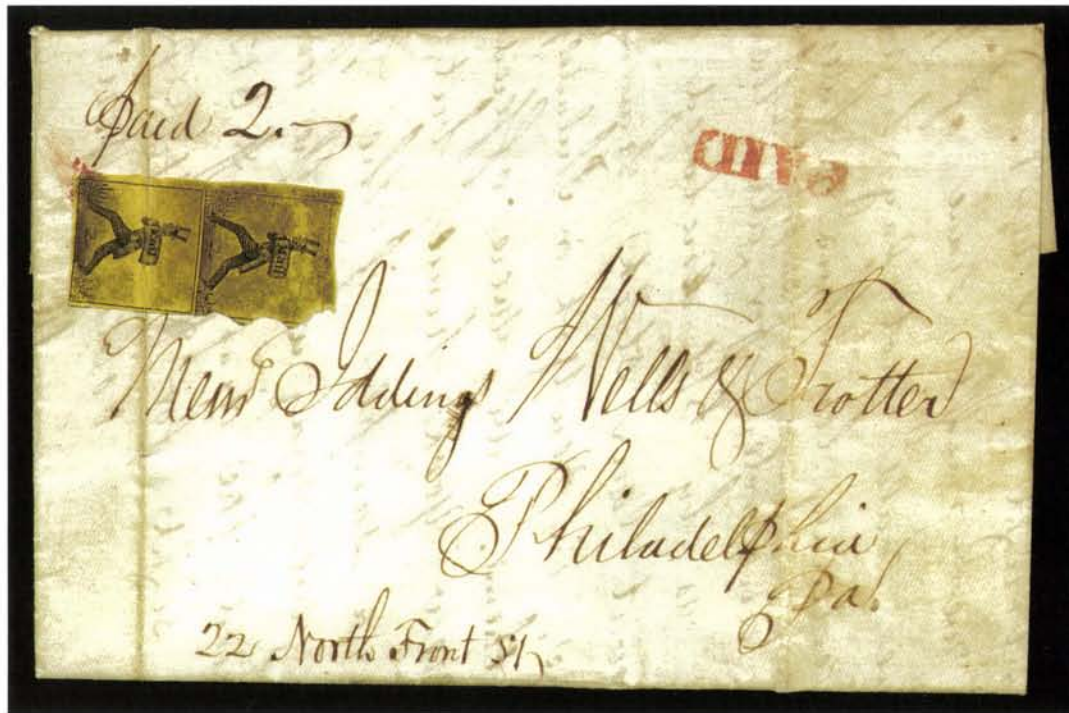 Paid 2.
PAID
Mail Mail
Messrs Iddings Wells & Trotter
Philadelphia
Pa.
22 North Front St